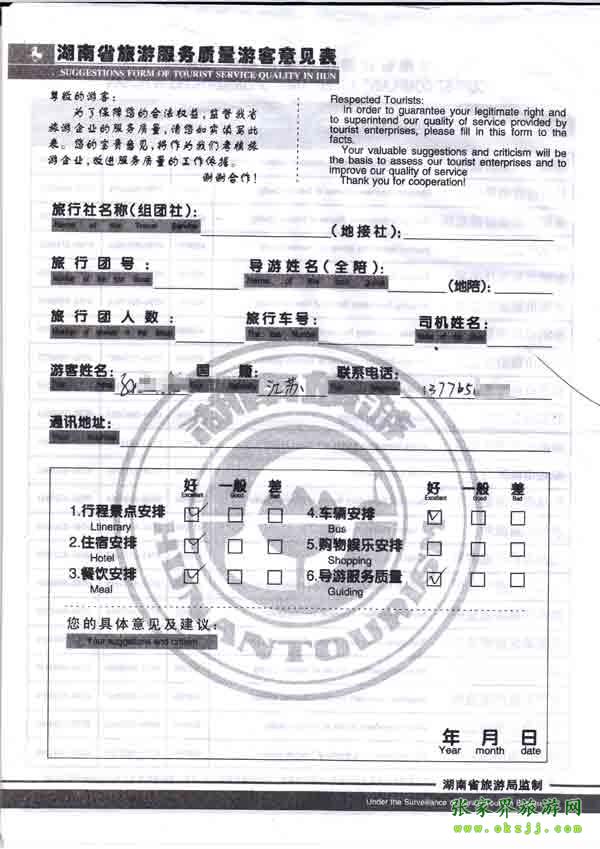 湖南省旅游服务质量游客意见表
SUGGESTIONS FORM OF TOURIST SERVICE QUALITY IN HUN
尊敬的游客:
为了保障您的合法权益,监督我省
旅游企业的服务质量,请您如实填写此
表。您的宝贵意见,将作为我们考核旅
游企业,改进服务质量的工作依据。
谢谢合作!
Respected Tourists:
In order to guarantee your legitimate right and
to superintend our quality of service provided by
tourist enterprises, please fill in this form to the
facts.
Your valuable suggestions and criticism will be
the basis to assess our tourist enterprises and to
improve our quality of service
Thank you for cooperation!
旅行社名称(组团社): (地接社):
Name of the Travel Service
旅行团号: 导游姓名(全陪): (地陪):
旅行团人数: 旅行车号: 司机姓名:
游客姓名: 国籍: 江苏 联系电话: 137765
通讯地址:
好 一般 差 好 一般 差
Excellent Good Bad Excellent Good Bad
1.行程景点安排 4.车辆安排
Ltinerary Bus
2.住宿安排 5.购物娱乐安排
Hotel Shopping
3.餐饮安排 6.导游服务质量
Meal Guiding
您的具体意见及建议:
Your suggestions and critism
HUNAN TOURISM
年 月 日
Year month date
湖南省旅游局监制
Under the Surveillance of
张家界旅游网
www.okzjj.com